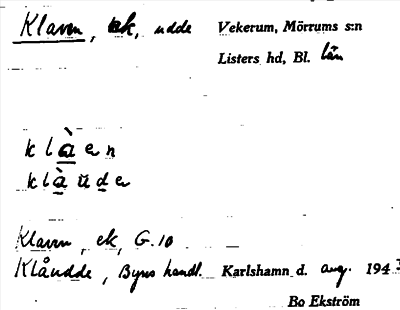 Klavın, ek, udde Vekerum, Mörrums s:n
Listers hd, Bl. län
k l à e n
k l à ŭ d e
Klavın, ek, G.10
Klåudde, Byns handl. Karlshamn d. aug. 194
Bo Ekström